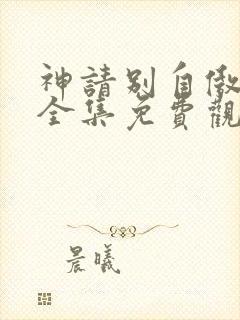 神請別自傲
全集免費觀
晨曦